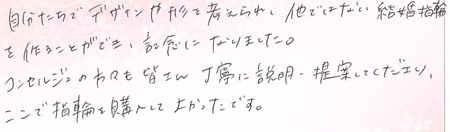 自分たちでデザインや形を考えられ、他ではない結婚指輪
を作ることができ、記念になりました。
コンセルジュの方々も皆さん丁寧に説明・提案してくださり、
ここで指輪を購入して良かったです。